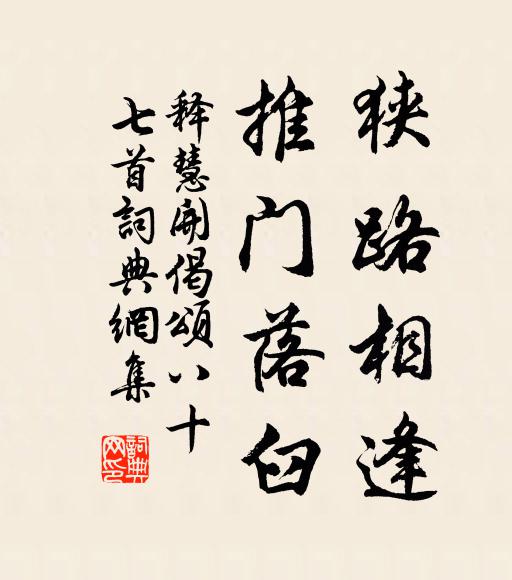 狭路相逢
推门落臼
释慧開偈頌八十
七首詞典網集
詞典
网印